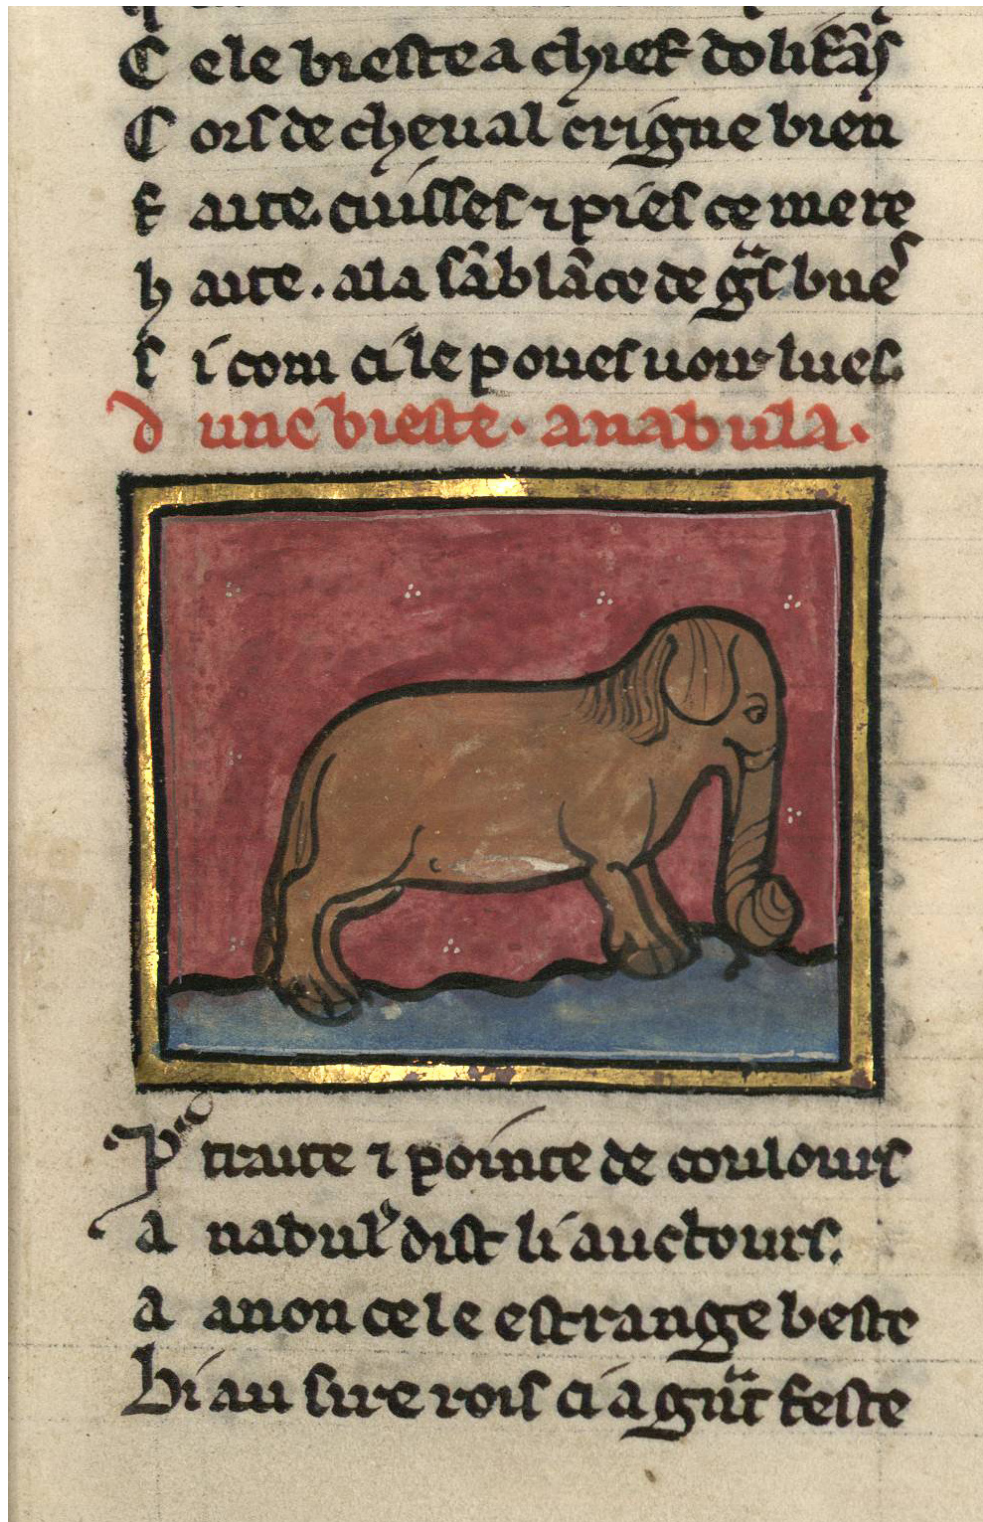 C ele bieste a chief dolifãs
C ors de cheual crigne bien
f aite. cuisses ⁊ pies ce me re
h aite. a la sãblãce de gͣs bues
s i com ci le poues uoir lues.
d une bieste. anabula.
Pͬ traite ⁊ pointe de coulours
a nabulꝰ dist li auctours.
a a non cele estrange beste
Biau sire rois ci a gͣt feste